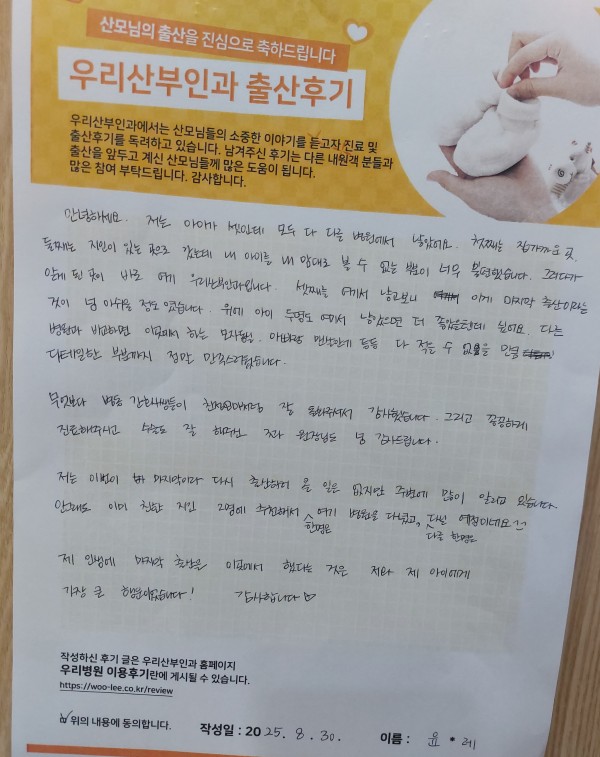 산모님의 출산을 진심으로 축하드립니다
우리산부인과 출산후기
우리산부인과에서는 산모님들의 소중한 이야기를 듣고자 진료 및
출산후기를 독려하고 있습니다. 남겨주신 후기는 다른 내원객 분들과
출산을 앞두고 계신 산모님들께 많은 도움이 됩니다.
많은 참여 부탁드립니다. 감사합니다.
안녕하세요. 저는 아이가 셋인데 모두 다 다른 병원에서 낳았어요. 첫째는 집가까운 곳,
둘째는 지인이 있는 곳으로 갔는데 내 아이를 내 맘대로 볼 수 없는 병원이 너무 불편했습니다. 그러다가
알게 된 곳이 바로 여기 우리산부인과입니다. 셋째를 여기서 낳고보니 이게 마지막 출산이라는
것이 넘 아쉬울 정도 였습니다. 위에 아이 두명도 여기서 낳았으면 더 좋았을텐데 싶어요. 다른
병원과 비교하면 이곳에서 하는 모자동실, 아빠랑 면회 등등 다 적을 수 없을 만큼
디테일한 부분까지 정말 만족스러웠습니다.
무엇보다 병동 간호사쌤들이 친정엄마처럼 잘 돌봐주셔서 감사했습니다. 그리고 꼼꼼하게
진료해주시고 수술도 잘 해주신 원장님도 넘 감사드립니다.
저는 이번이 마지막이라 다시 출산하러 올 일은 없지만 주변에 많이 알리고 있습니다
안그래도 이미 친한 지인 2명에 추천해서 한명은 여기 병원을 다녔고, 다른 한명은 다닐 예정이네요^^
제 인생에 마지막 출산을 이곳에서 했다는 것은 저와 제 아이에게
가장 큰 행운이었습니다! 감사합니다♡
작성하신 후기 글은 우리산부인과 홈페이지
우리병원 이용후기란에 게시될 수 있습니다.
https://woo-lee.co.kr/review
위의 내용에 동의합니다. 작성일 : 2025. 8. 30. 이름 : 윤 * 레